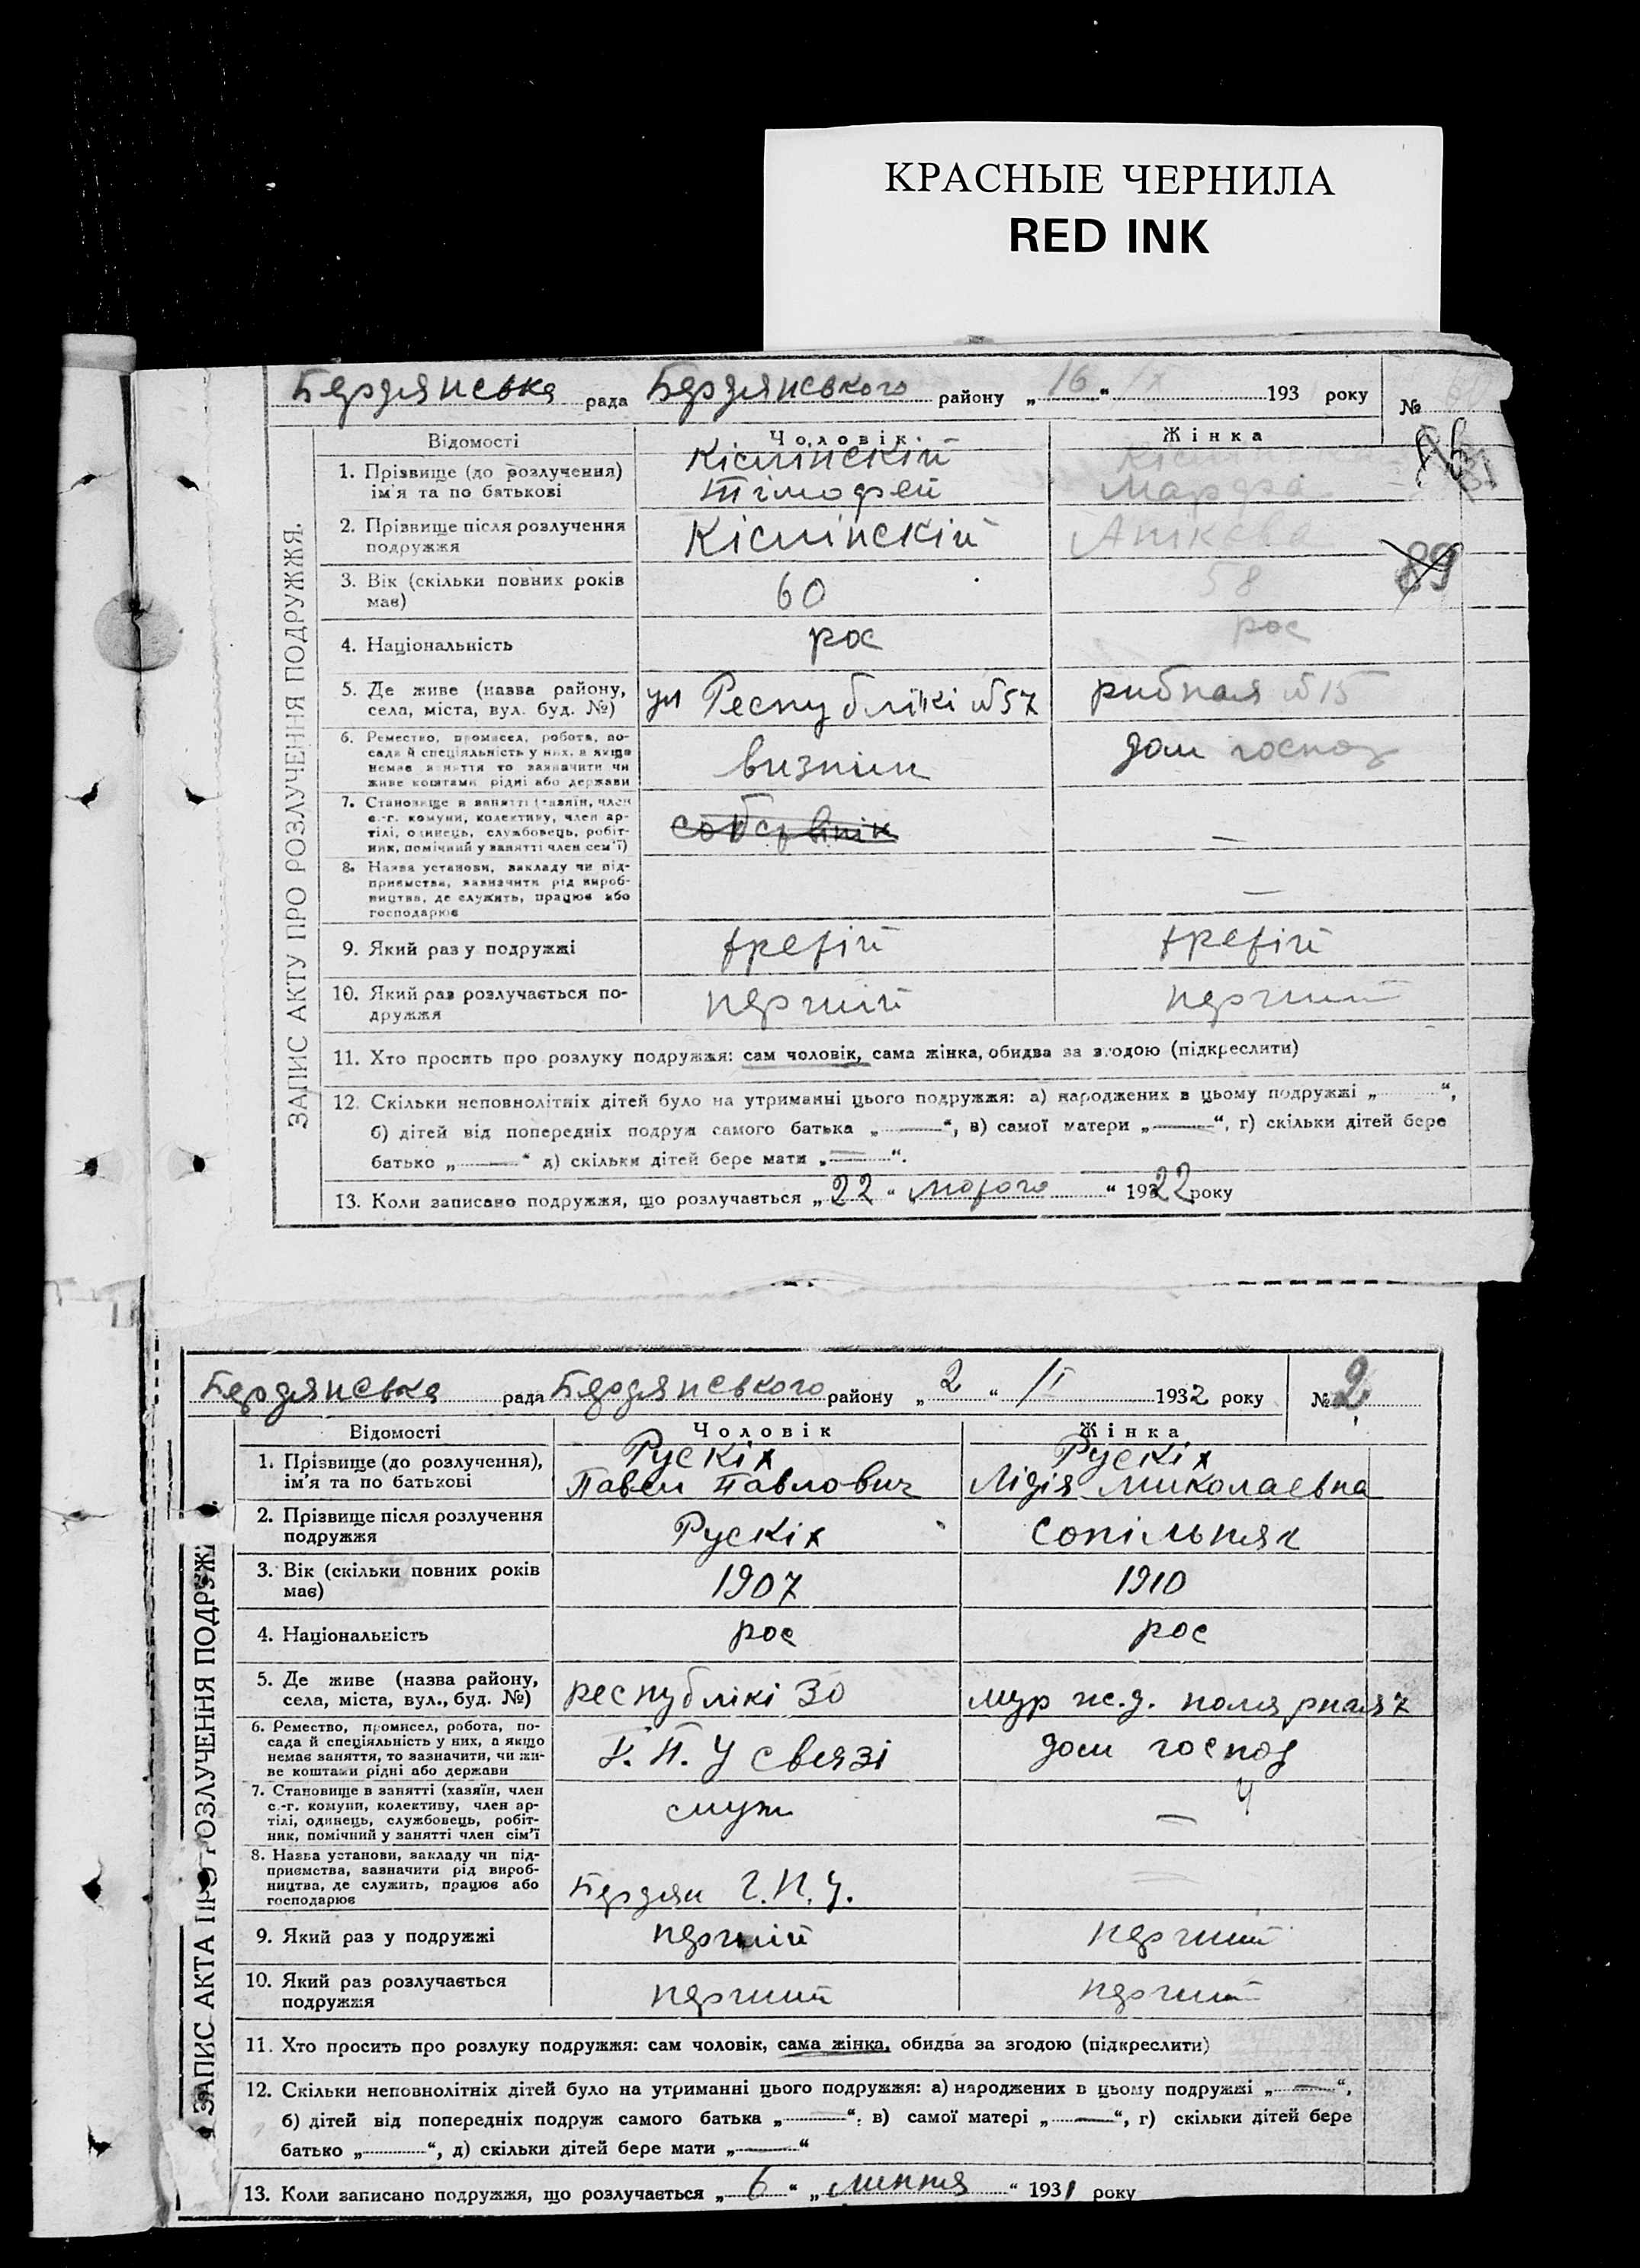 КРАСНЫЕ ЧЕРНИЛА
RED INK
Бердянська рада Бердянського району „ 16 “ IX 193 року №
ЗАПИС АКТУ ПРО РОЗЛУЧЕННЯ ПОДРУЖЖЯ.
Відомості Чоловік. Жінка
1. Прізвище (до розлучення) ім'я та по батькові Кісмінскій Тімофей Марфа
2. Прізвище після розлучення подружжя Кісмінскій Анікєва
89
3. Вік (скільки повних років має) 60 58
4. Національність рос рос
5. Де живе (назва району, села, міста, вул. буд. №) ул Республікі №57 рибная №15
6. Ремество, промисел, робота, посада й спеціяльність у них, а якщо немає заняття то зазначити чи живе коштами рідні або держави визнік дом господ
7. Становище в занятті (хазяїн, член с.-г. комуни, колективу, член артілі, одинець, службовець, робітник, помічний у занятті член сем'ї) собствінік —
8. Назва установи, закладу чи підприємства, зазначити рід виробництва, де служить, працює або господарює —
9. Який раз у подружжі третій третій
10. Який раз розлучається подружжя перший перший
11. Хто просить про розлуку подружжя: сам чоловік, сама жінка, обидва за згодою (підкреслити)
12. Скільки неповнолітніх дітей було на утриманні цього подружжя: а) народжених в цьому подружжі „ “,
б) дітей від попередніх подруж самого батька „ — “, в) самої матери „ — “, г) скільки дітей бере
батько „ — “ д) скільки дітей бере мати „ — “.
13. Коли записано подружжя, що розлучається „ 22 “ „ лютого “ 1922 року
Бердянська рада Бердянського району „ 2 “ II 1932 року № 2
ЗАПИС АКТА ПРО РОЗЛУЧЕННЯ ПОДРУЖ
Відомості Чоловік Жінка
1. Прізвище (до розлучення), ім'я та по батькові Рускіх Павел Павлович Рускіх Лідія Миколаевна
2. Прізвище після розлучення подружжя Рускіх Сопільняк
3. Вік (скільки повних років має) 1907 1910
4. Національність рос рос
5. Де живе (назва району, села, міста, вул., буд. №) республікі 30 мур ж.д. полярная 7
6. Ремество, промисел, робота, посада й спеціяльність у них, а якщо немає заняття, то зазначити, чи живе коштами рідні або держави Г.П.У связі дом господ
7. Становище в занятті (хазяїн, член с.-г. комуни, колективу, член артілі, одинець, службовець, робітник, помічний у занятті член сім'ї служ —
8. Назва установи, закладу чи підприємства, зазначити рід виробництва, де служить, працює або господарює Бердян Г.П.У. —
9. Який раз у подружжі перший перший
10. Який раз розлучається подружжя перший перший
11. Хто просить про розлуку подружжя: сам чоловік, сама жінка, обидва за згодою (підкреслити)
12. Скільки неповнолітніх дітей було на утриманні цього подружжя: а) народжених в цьому подружжі „ — “,
б) дітей від попередніх подруж самого батька „ — “, в) самої матері „ — “, г) скільки дітей бере
батько „ “, д) скільки дітей бере мати „ — “
13. Коли записано подружжя, що розлучається „ 6 “ „ липня “ 1931 року